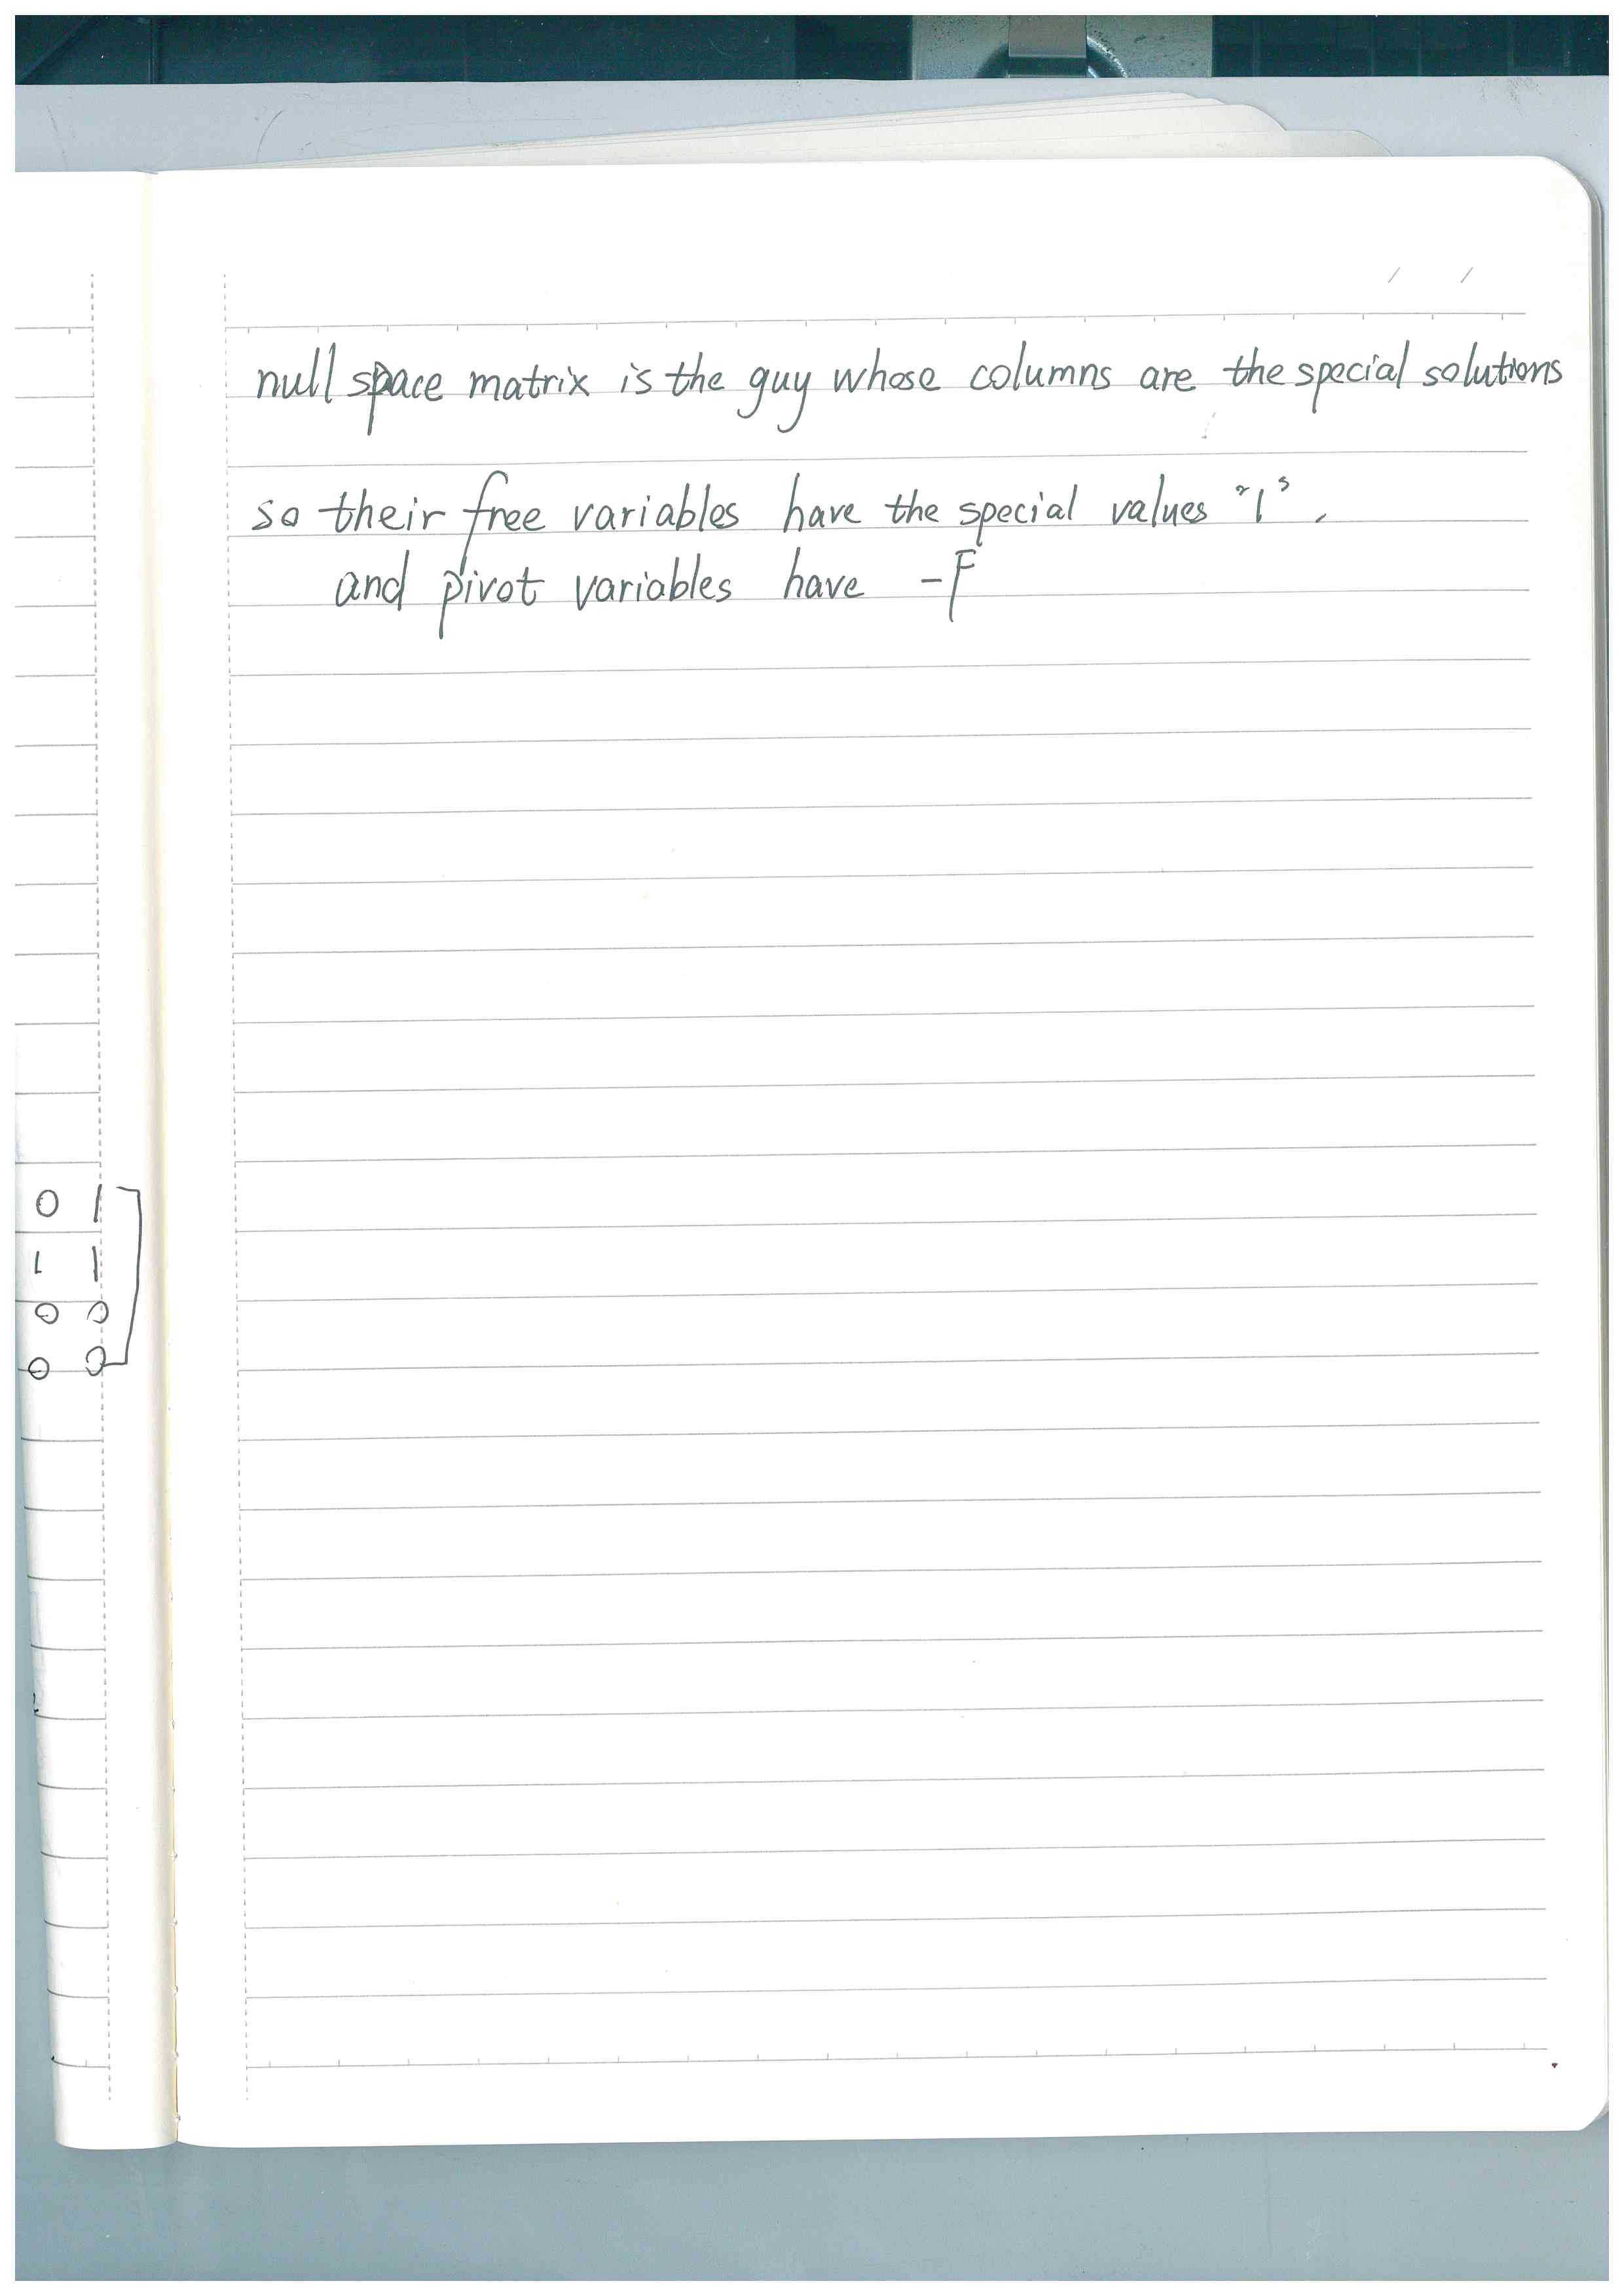 null space matrix is the guy whose columns are the special solutions
so their free variables have the special values "1",
and pivot variables have -F
0 1
1 1
0 0
0 0